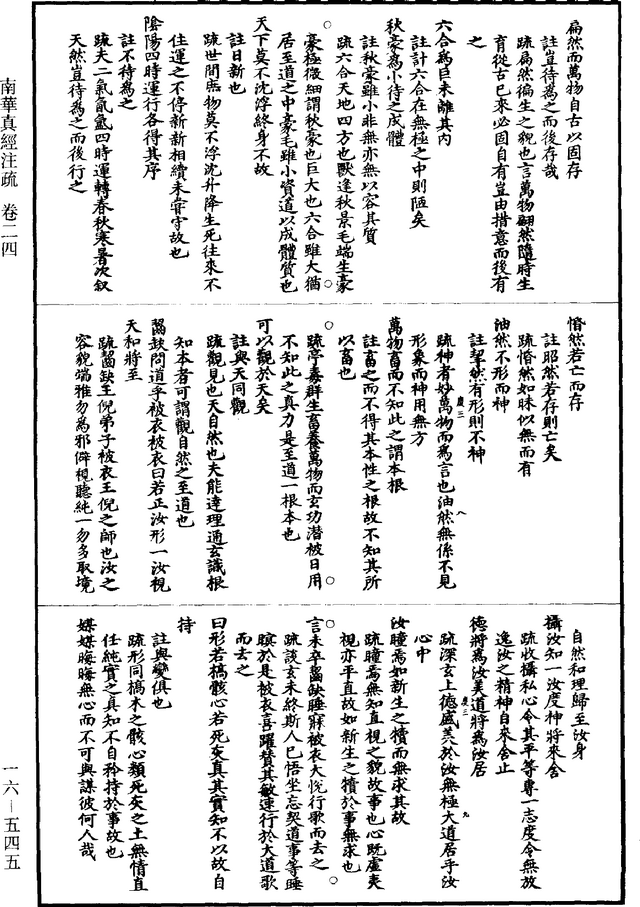 扁然而萬物自古以固存
註豈待為之而後存哉
疏扁然徧生之貌也言萬物翩然隨時生
育從古已來必固自有豈由措意而後有
之
六合為巨未離其內
註計六合在無極之中則陋矣
秋豪為小待之成體
註秋豪雖小非無亦無以容其質
疏六合天地四方也獸逢秋景毛端生豪
豪極微細謂秋豪也巨大也六合雖大猶
居至道之中豪毛雖小資道以成體質也
天下莫不沈浮終身不故
註日新也
疏世間庶物莫不浮沈升降生死往來不
住運之不停新新相續未甞守故也
陰陽四時運行各得其序
註不待為之
疏夫二氣氤氳四時運轉春秋寒暑次叙
天然豈待為之而後行之
惛然若亡而存
註昭然若存則亡矣
疏惛然如昧似無而有
油然不形而神
註挈然有形則不神
疏神者妙萬物而為言也油然無係不見
形象而神用無方
萬物畜而不知此之謂本根
註畜之而不得其本性之根故不知其所
以畜也
疏亭毒群生畜養萬物而玄功潛被日用
不知此之真力是至道一根本也
可以觀於天矣
註與天同觀
疏觀見也天自然也夫能達理通玄識根
知本者可謂觀自然之至道也
齧缺問道乎被衣被衣曰若正汝形一汝視
天和將至
疏齧缺王倪弟子被衣王倪之師也汝之
容貌端雅勿為邪僻視聽純一勿多取境
自然和理歸至汝身
攝汝知一汝度神將來舍
疏收攝私心令其平等專一志度令無放
逸汝之精神自來舍止
德將為汝美道將為汝居
疏深玄上德盛美於汝無極大道居乎汝
心中
汝瞳焉如新生之犢而無求其故
疏瞳焉無知直視之貌故事也心既虛夷
視亦平直故如新生之犢於事無求也
言未卒齧缺睡寐被衣大悅行歌而去之
疏談玄未終斯人已悟坐忘契道事等睡
瞑於是被衣喜躍贊其敏速行於大道歌
而去之
曰形若槁骸心若死灰真其實知不以故自
持
註與變俱也
疏形同槁木之骸心類死灰之土無情直
任純實之真知不自矜持於事故也
媒媒晦晦無心而不可與謀彼何人哉
南華真經注疏 卷二四
一六－五四五